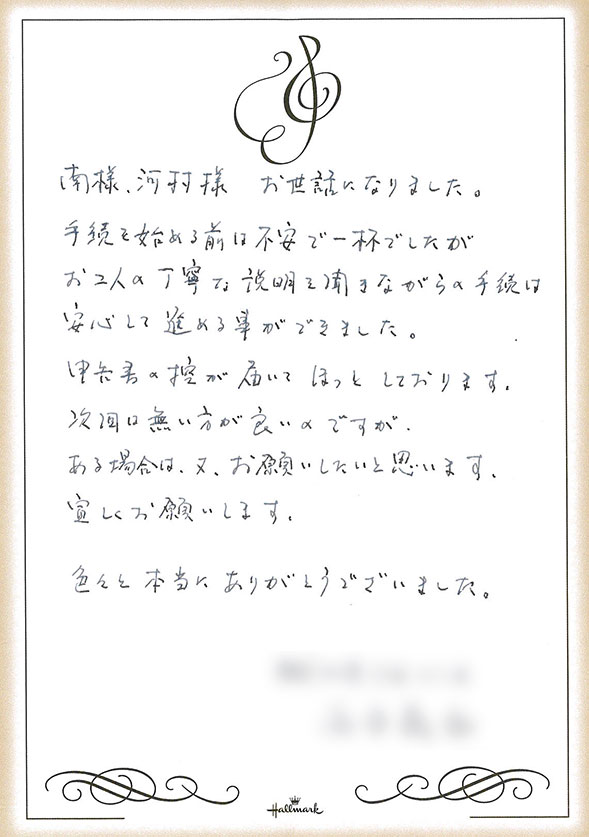 南様、河村様　お世話になりました。
手続を始める前は不安で一杯でしたが
お二人の丁寧な説明を聞きながらの手続は
安心して進める事ができました。
申告書の控が届いてほっとしております。
次回は無い方が良いのですが、
ある場合は、又、お願いしたいと思います。
宜しくお願いします。
色々と本当にありがとうございました。
Hallmark